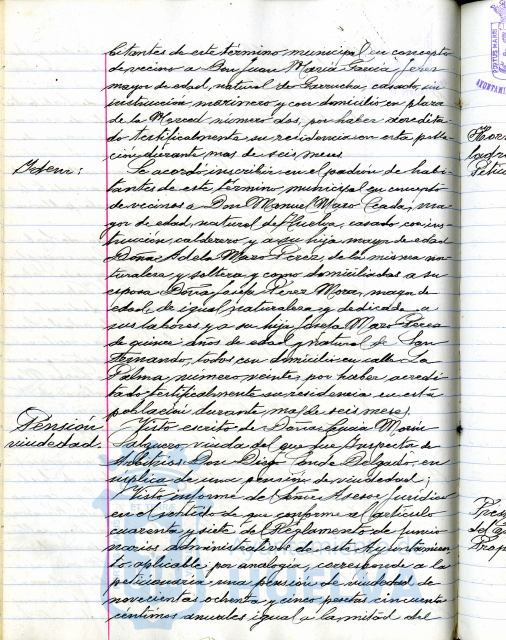 bitantes de este término municipal en concepto
de vecino a Don Juan María García Jerez
mayor de edad, natural de Garrucha, casado, sin
instrucción, marinero y con domicilio en plaza
de la Merced número dos, por haber acredita-
do testificalmente su residencia en esta pobla-
ción durante mas de seis meses.
Idem:
Se acordó inscribir en el padrón de habi-
tantes de este término municipal en concepto
de vecinos a Don Manuel Mazo Ceada, ma-
yor de edad, natural de Huelva, casado con ins-
trucción, calderero y a su hija mayor de edad
Doña Adela Mazo Pérez de la misma na-
turaleza y soltera y como domiciliadas a su
esposa Doña Josefa Pérez Mora, mayor de
edad, de igual naturaleza y dedicada a
sus labores y a su hija Josefa Mazo Pérez
de quince años de edad y natural de San
Fernando, todos con domicilio en calle La
Palma, número veinte, por haber acredi-
tado testificalmente su residencia en esta
población durante mas de seis meses.
Pensión
viudedad
Visto escrito de Doña Lucía Marín
Salguero, viuda del que fue Inspector de
Arbitrios Don Diego Conde Delgado, en
suplica de una pensión de viudedad;
Visto informe de Señor Asesor Jurídico
en el sentido de que conforme al artículo
cuarenta y siete del Reglamento de funcio-
narios administrativos de este Ayuntamien-
to aplicable por analogía, corresponde a la
peticionaria una pensión de viudedad de
novecientas ochenta y cinco pesetas cincuenta
céntimos anuales igual a la mitad del